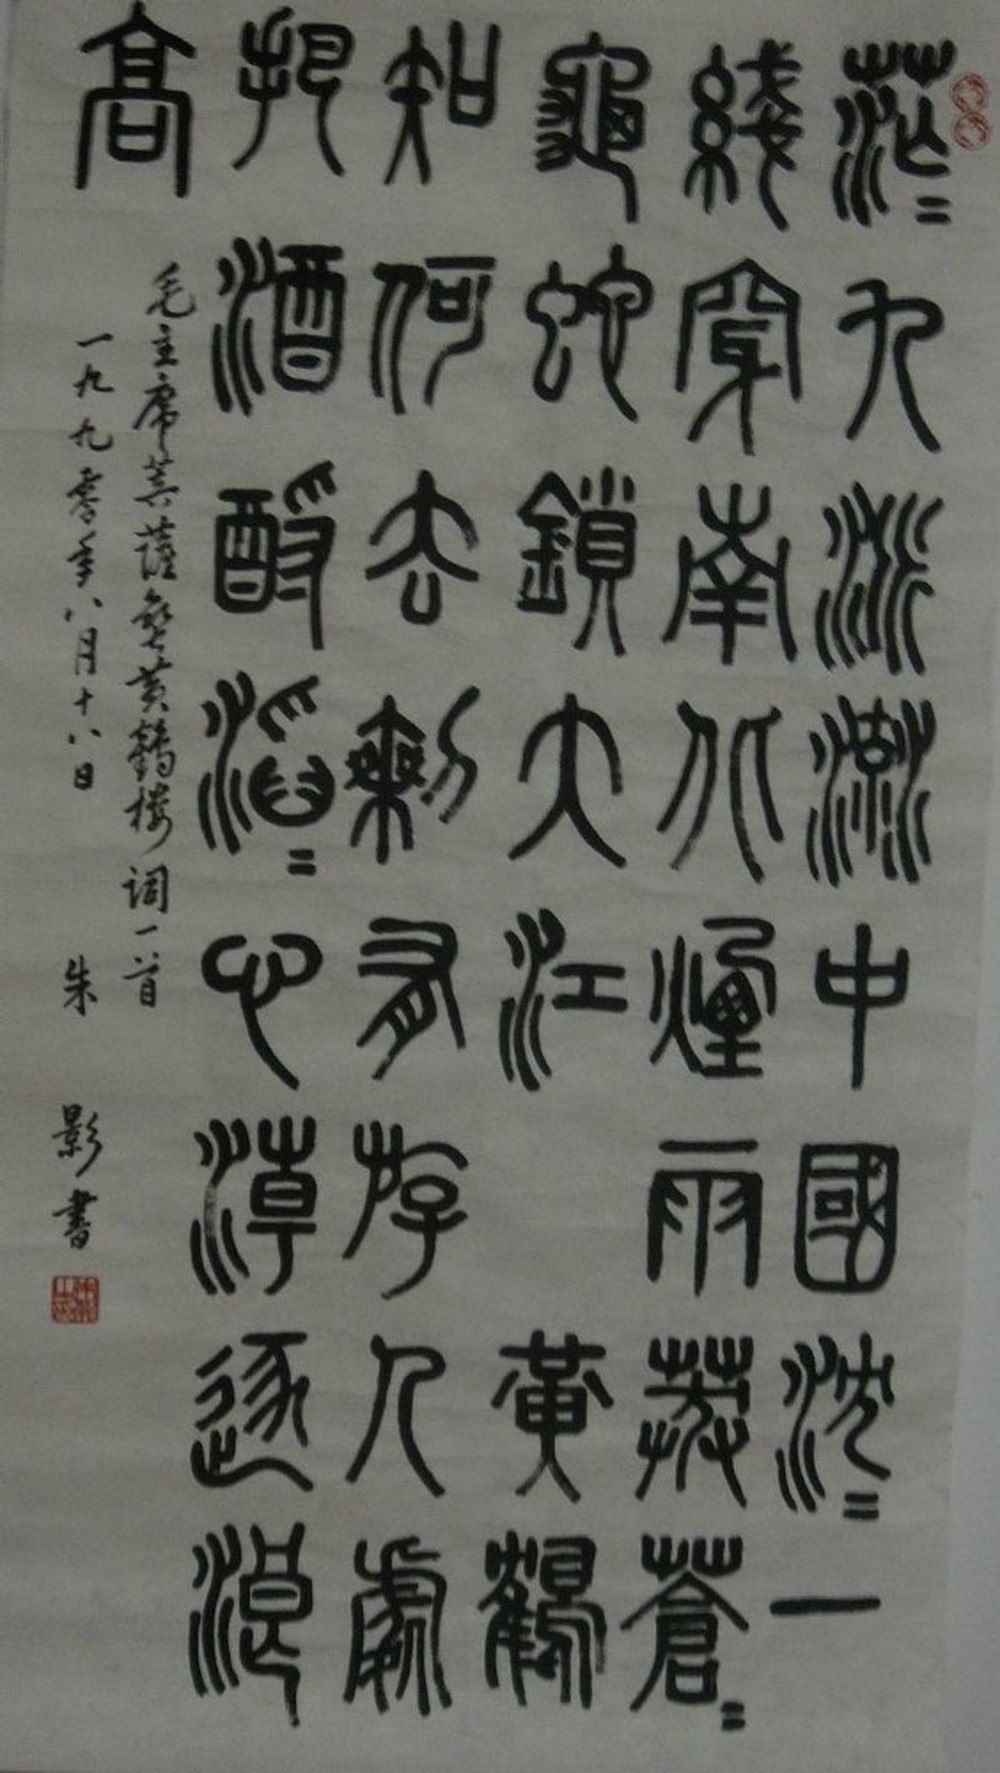 茫〻九派流中國沈〻一
綫穿南北煙雨莽〻蒼〻
龜蛇鎖大江 黃鶴
知何去剩有斿人處
把酒酹滔〻心潮逐浪
高
毛主席菩薩蠻黃鶴樓詞一首
一九九零年八月十八日 朱影書